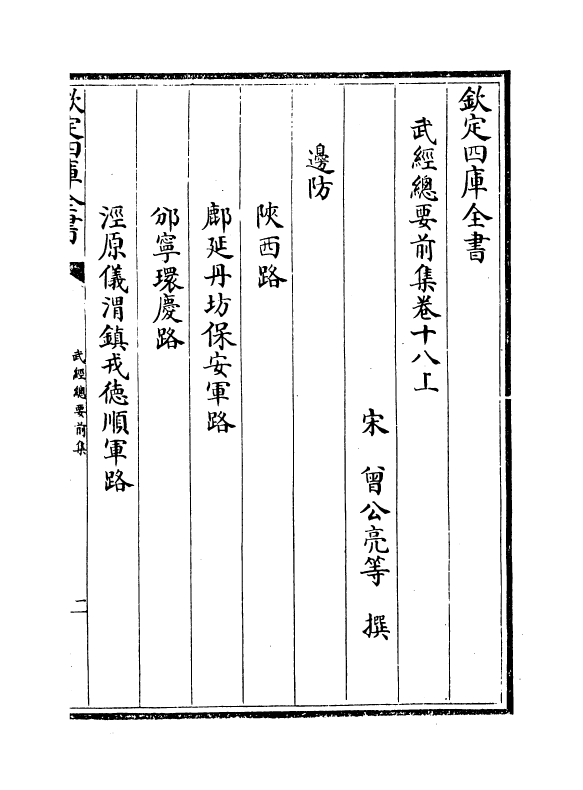 欽定四庫全書
武經總要前集卷十八上
宋 曾公亮等 撰
邊防
陜西路
鄜延丹坊保安軍路
邠寧環慶路
涇原儀渭鎮戎德順軍路
欽定四庫全書
武經總要前集
二